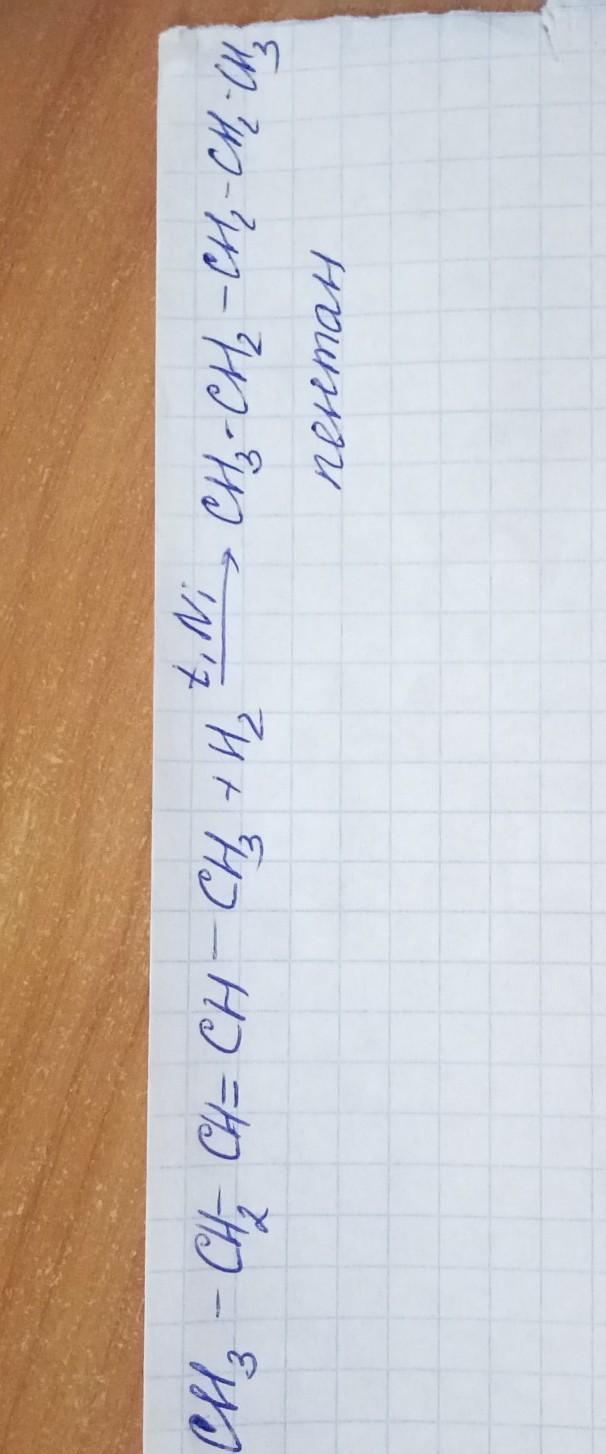 CH₃ – CH₂ – CH = CH – CH₃ + H₂ t, Ni → CH₃ - CH₂ - CH₂ - CH₂ - CH₃
пентан